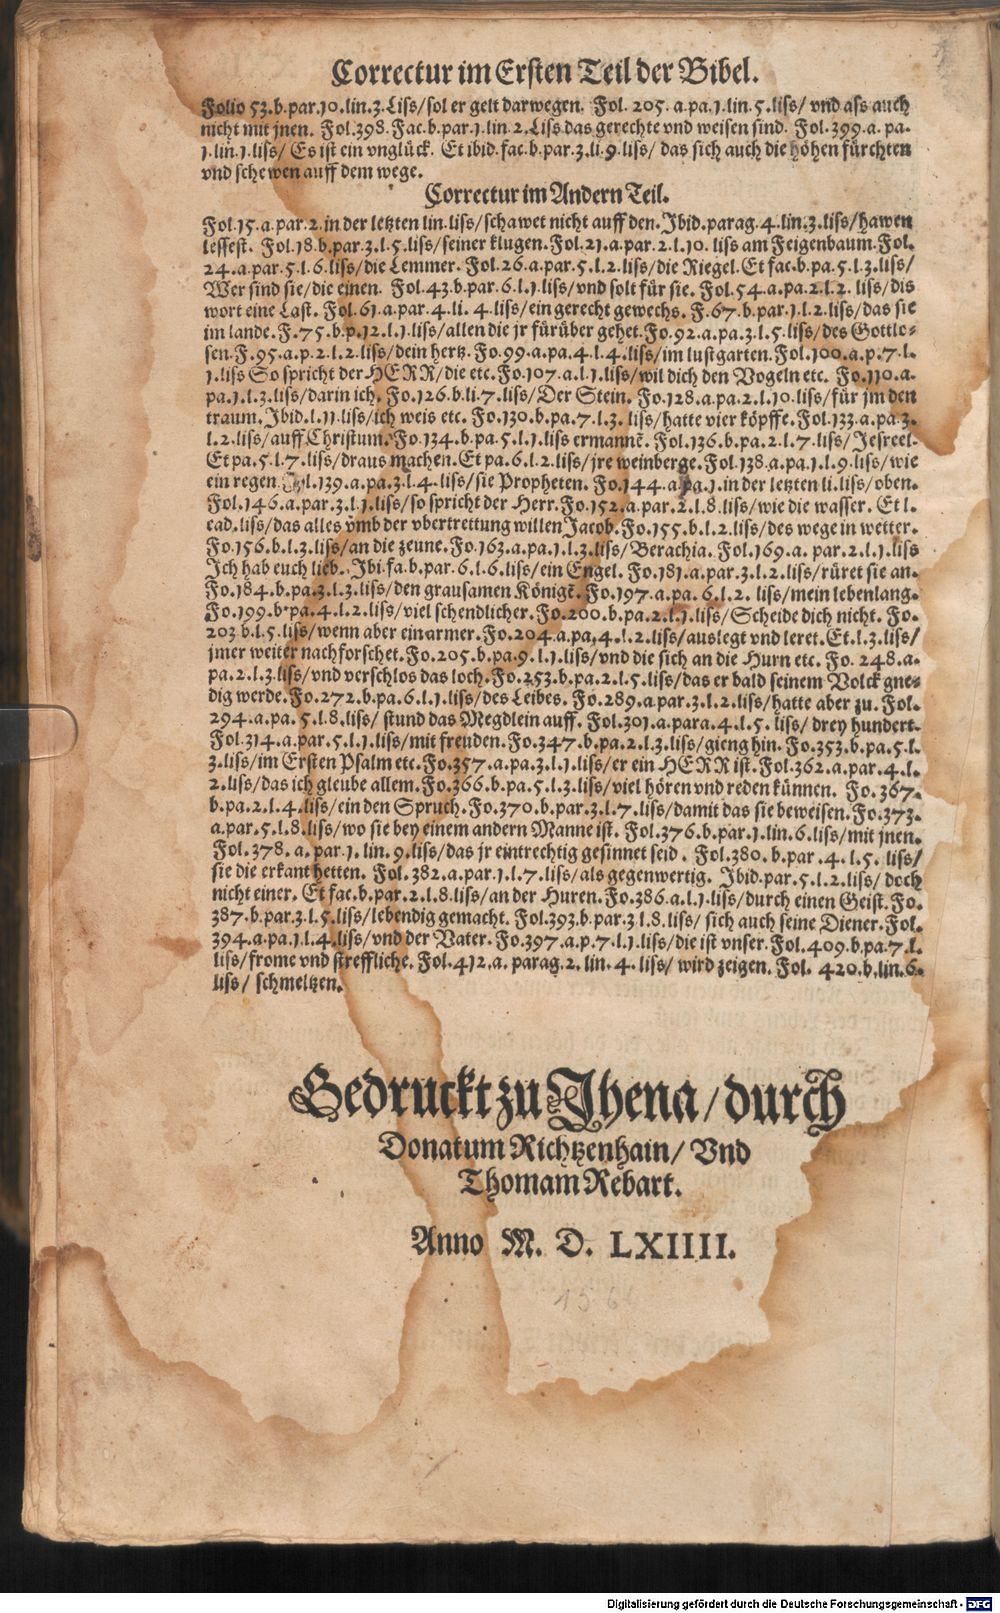 Correctur im Ersten Teil der Bibel.
Folio 53.b.par.10.lin.3.Liss/sol er gelt darwegen. Fol. 205. a.pa.1.lin.5.liss/ vnd ass auch
nicht mit jnen. Fol.398. Fac.b.par.1.lin.2.Liss das gerechte vnd weisen sind. Fol.399.a. pa.
1.lin.1.liss/ Es ist ein vnglück. Et ibid.fac.b.par.3.li.9.liss/ das sich auch die höhen fürchten
vnd schewen auff dem wege.
Correctur im Andern Teil.
Fol.15.a.par.2.in der letzten lin.liss/schawet nicht auff den.Ibid.parag.4.lin.3.liss/hawen
lessest. Fol.18.b.par.3.l.5.liss/seiner klugen.Fol.21.a.par.2.l.10. liss am Feigenbaum.Fol.
24.a.par.5.l.6.liss/die Lemmer. Fol.26.a.par.5.l.2.liss/die Riegel.Et fac.b.pa.5.l.3.liss/
Wer sind sie/die einen. Fol.43.b.par.6.l.1.liss/vnd solt für sie. Fol.54.a.pa.2.l.2. liss/dis
wort eine Last. Fol.61.a.par.4.li. 4.liss/ein gerecht gewechs. F.67.b.par.1.l.2.liss/das sie
im lande.F.75.b.p.12.l.1.liss/allen die jr fürüber gehet.Fo.92.a.pa.3.l.5.liss/des Gottlo-
sen.F.95.a.p.2.l.2.liss/dein hertz.Fo.99.a.pa.4.l.4.liss/im lustgarten.Fol.100.a.p.7.l.
1.liss So spricht der HERR/die etc.Fo.107.a.l.1.liss/wil dich den Vogeln etc. Fo.110.a.
pa.1.l.3.liss/darin ich. Fo.126.b.li.7.liss/Der Stein. Fo.128.a.pa.2.l.10.liss/für jm den
traum. Ibid.l.11.liss/ich weis etc. Fo.130.b.pa.7.l.3. liss/hatte vier köpffe.Fol.133.a.pa.3.
l.2.liss/auff Christum.Fo.134.b.pa.5.l.1.liss ermannẽ. Fol.136.b.pa.2.l.7.liss/ Jesreel.
Et pa.5.l.7.liss/draus machen.Et pa.6.l.2.liss/jre weinberge.Fol.138.a.pa.1.l.9.liss/wie
ein regen. Fol.139.a.pa.3.l.4.liss/sie Propheten. Fo.144.a.pa.1.in der letzten li.liss/oben.
Fol.146.a.par.3.l.1.liss/so spricht der Herr.Fo.152.a.par.2.l.8.liss/wie die wasser. Et l.
ead.liss/das alles vmb der vbertrettung willen Jacob.Fo.155.b.l.2.liss/des wege in wetter.
Fo.156.b.l.3.liss/an die zeune.Fo.163.a.pa.1.l.3.liss/Berachia. Fol.169.a. par.2.l.1.liss
Ich hab euch lieb. Ibi.fa.b.par.6.l.6.liss/ein Engel. Fo.181.a.par.3.l.2.liss/rüret sie an.
Fo.184.b.pa.3.l.3.liss/den grausamen Königẽ.Fo.197.a.pa.6.l.2. liss/mein lebenlang.
Fo.199.b.pa.4.l.2.liss/viel schendlicher.Fo.200.b.pa.2.l.1.liss/Scheide dich nicht. Fo.
203 b.l.5.liss/wenn aber ein armer.Fo.204.a.pa.4.l.2.liss/auslegt vnd leret.Et.l.3.liss/
jmer weiter nachforschet.Fo.205.b.pa.9.l.1.liss/vnd die sich an die Hurn etc. Fo. 248.a.
pa.2.l.3.liss/vnd verschlos das loch.Fo.253.b.pa.2.l.5.liss/das er bald seinem Volck gne-
dig werde.Fo.272.b.pa.6.l.1.liss/des Leibes. Fo.289.a.par.3.l.2.liss/hatte aber zu. Fol.
294.a.pa.5.l.8.liss/ stund das Megdlein auff. Fol.301.a.para.4.l.5. liss/ drey hundert.
Fol.314.a.par.5.l.1.liss/mit freuden.Fo.347.b.pa.2.l.3.liss/gieng hin. Fo.353.b.pa.5.l.
3.liss/im Ersten Psalm etc.Fo.357.a.pa.3.l.1.liss/er ein HERR ist.Fol.362.a.par.4.l.
2.liss/das ich gleube allem.Fo.366.b.pa.5.l.3.liss/viel hören vnd reden künnen. Fo.367.
b.pa.2.l.4.liss/ein den Spruch.Fo.370.b.par.3.l.7.liss/damit das sie beweisen.Fo.373.
a.par.5.l.8.liss/wo sie bey einem andern Manne ist. Fol.376.b.par.1.lin.6.liss/mit jnen.
Fol.378. a. par.1. lin. 9.liss/das jr eintrechtig gesinnet seid. Fol.380. b.par.4.l.5. liss/
sie die erkant hetten. Fol.382.a.par.1.l.7.liss/als gegenwertig. Ibid.par.5.l.2.liss/ doch
nicht einer. Et fac.b.par.2.l.8.liss/an der Huren.Fo.386.a.l.1.liss/durch einen Geist.Fo.
387.b.par.3.l.5.liss/lebendig gemacht. Fol.393.b.par.3 l.8.liss/ sich auch seine Diener.Fol.
394.a.pa.1.l.4.liss/vnd der Vater. Fo.397.a.p.7.l.1.liss/die ist vnser.Fol.409.b.pa.7.l.
liss/frome vnd streffliche. Fol.412.a. parag.2. lin.4. liss/ wird zeigen. Fol. 420.b.lin.6.
liss/ schmeltzen.
Gedruckt zu Jhena/durch
Donatum Richtzenhain/ Vnd
Thomam Rebart.
Anno M. D. LXIIII.
1564
Digitalisierung gefördert durch die Deutsche Forschungsgemeinschaft - DFG